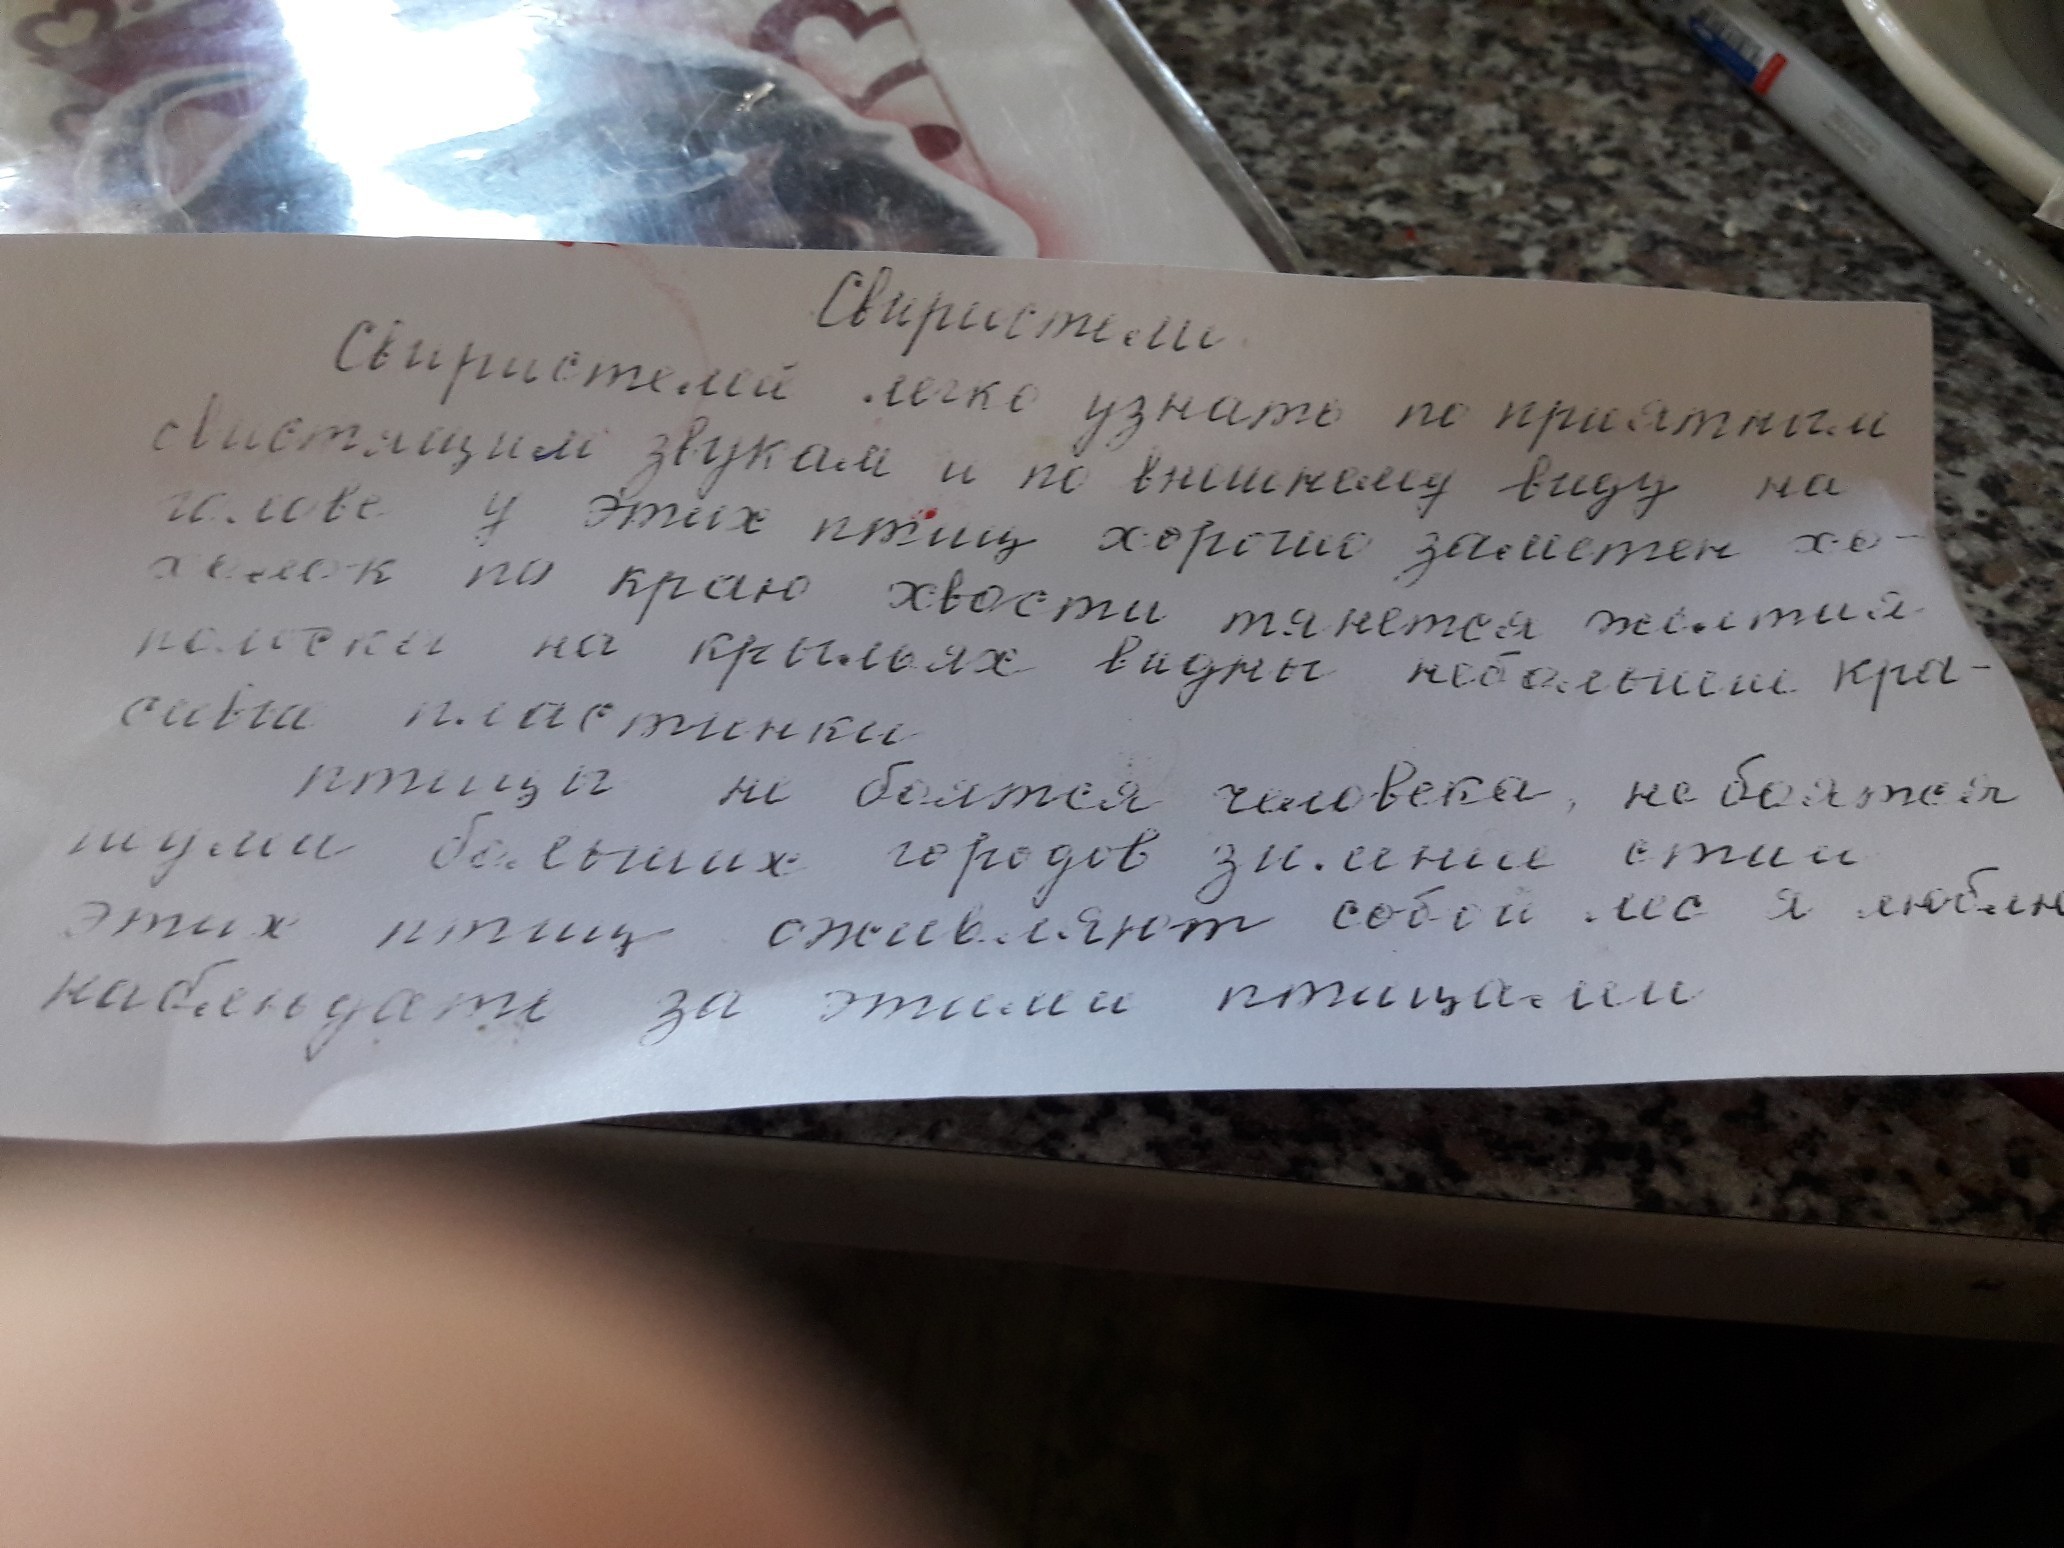 Свиристели.
Свиристелей легко узнать по приятным
свистящим звукам и по внешнему виду на
голове у этих птиц хорошо заметен хо-
холок по краю хвоста тянется желтая
полоска на крыльях видны небольшие кра-
сивые пластинки
птицы не боятся человека, не боятся
шума больших городов зимние стаи
этих птиц оживляют собой лес я люблю
наблюдать за этими птицами